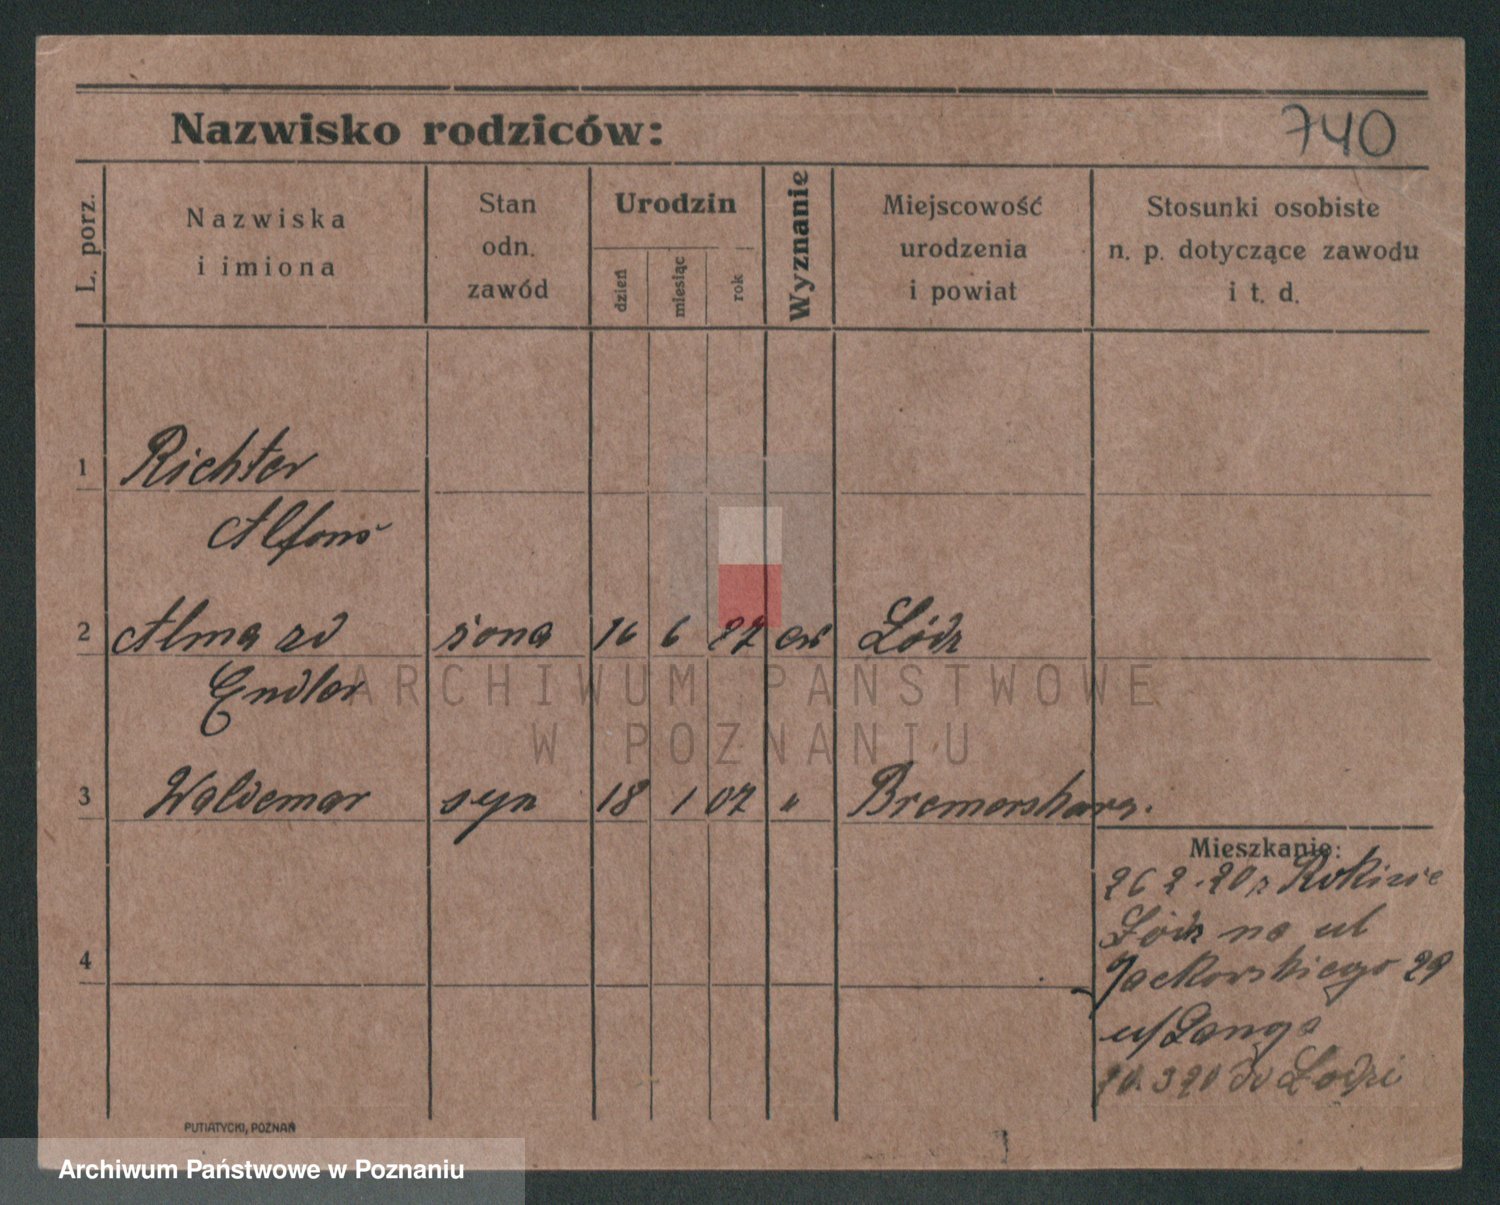 Nazwisko rodziców:
740
L. porz.
Nazwiska
i imiona
Stan
odn.
zawód
Urodzin
dzień
miesiąc
rok
Wyznanie
Miejscowość
urodzenia
i powiat
Stosunki osobiste
n. p. dotyczące zawodu
i t. d.
1 Richter
Alfons
2 Alma zd żona 16 6 87 ew Łódz
Endler
3 Waldemar syn 18 1 07 " Bremershang.
Mieszkanie:
26 2.20 z Rokicie
Łódz na ul
Jackowskiego 29
u/Lange
20.3 20 do Łodzi
4
PUTIATYCKI, POZNAŃ
ARCHIWUM PAŃSTWOWE
W POZNANIU
Archiwum Państwowe w Poznaniu